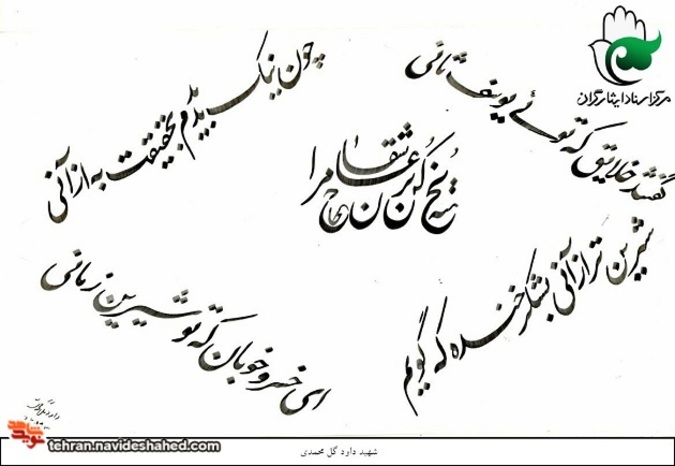 مرکز اسناد ایثارگران
گفتند خلایق که توئی یوسف ثانی
چون نیک بدیدم بحقیقت به از آنی
مرا
شیرین تر از آنی بشکر خنده که گویم
ای خسرو خوبان که تو شیرین زمانی
نوید شاهد
tehran.navideshahed.com
شهید داود گل محمدی